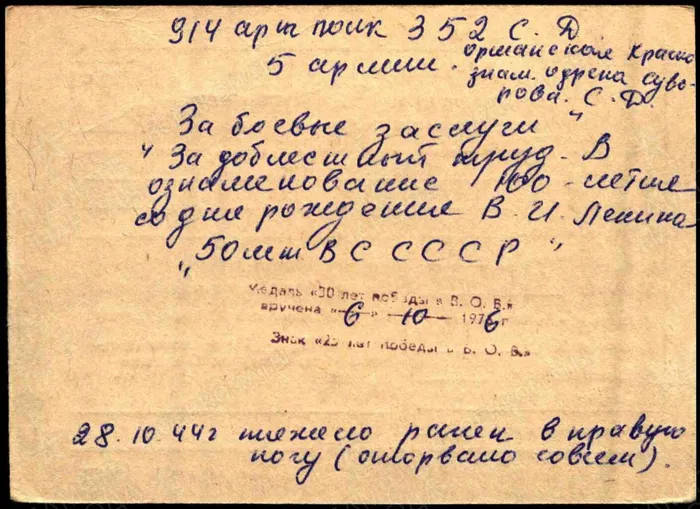 914 арт полк 352 С. Д.
5 армии. оршанской Красно
знам. ордена Суво-
рова. С. Д.
За боевые заслуги"
"За доблестный труд. В
ознаменование 100-летие
со дня рождения В. И. Ленина
"50 лет ВС СССР"
Медаль «30 лет победы в В. О. В.»
вручена «6» 10 1976г
Знак «25 лет победы в В. О. В.»
28.10.44г тяжело ранен в правую
ногу (оторвало совсем).